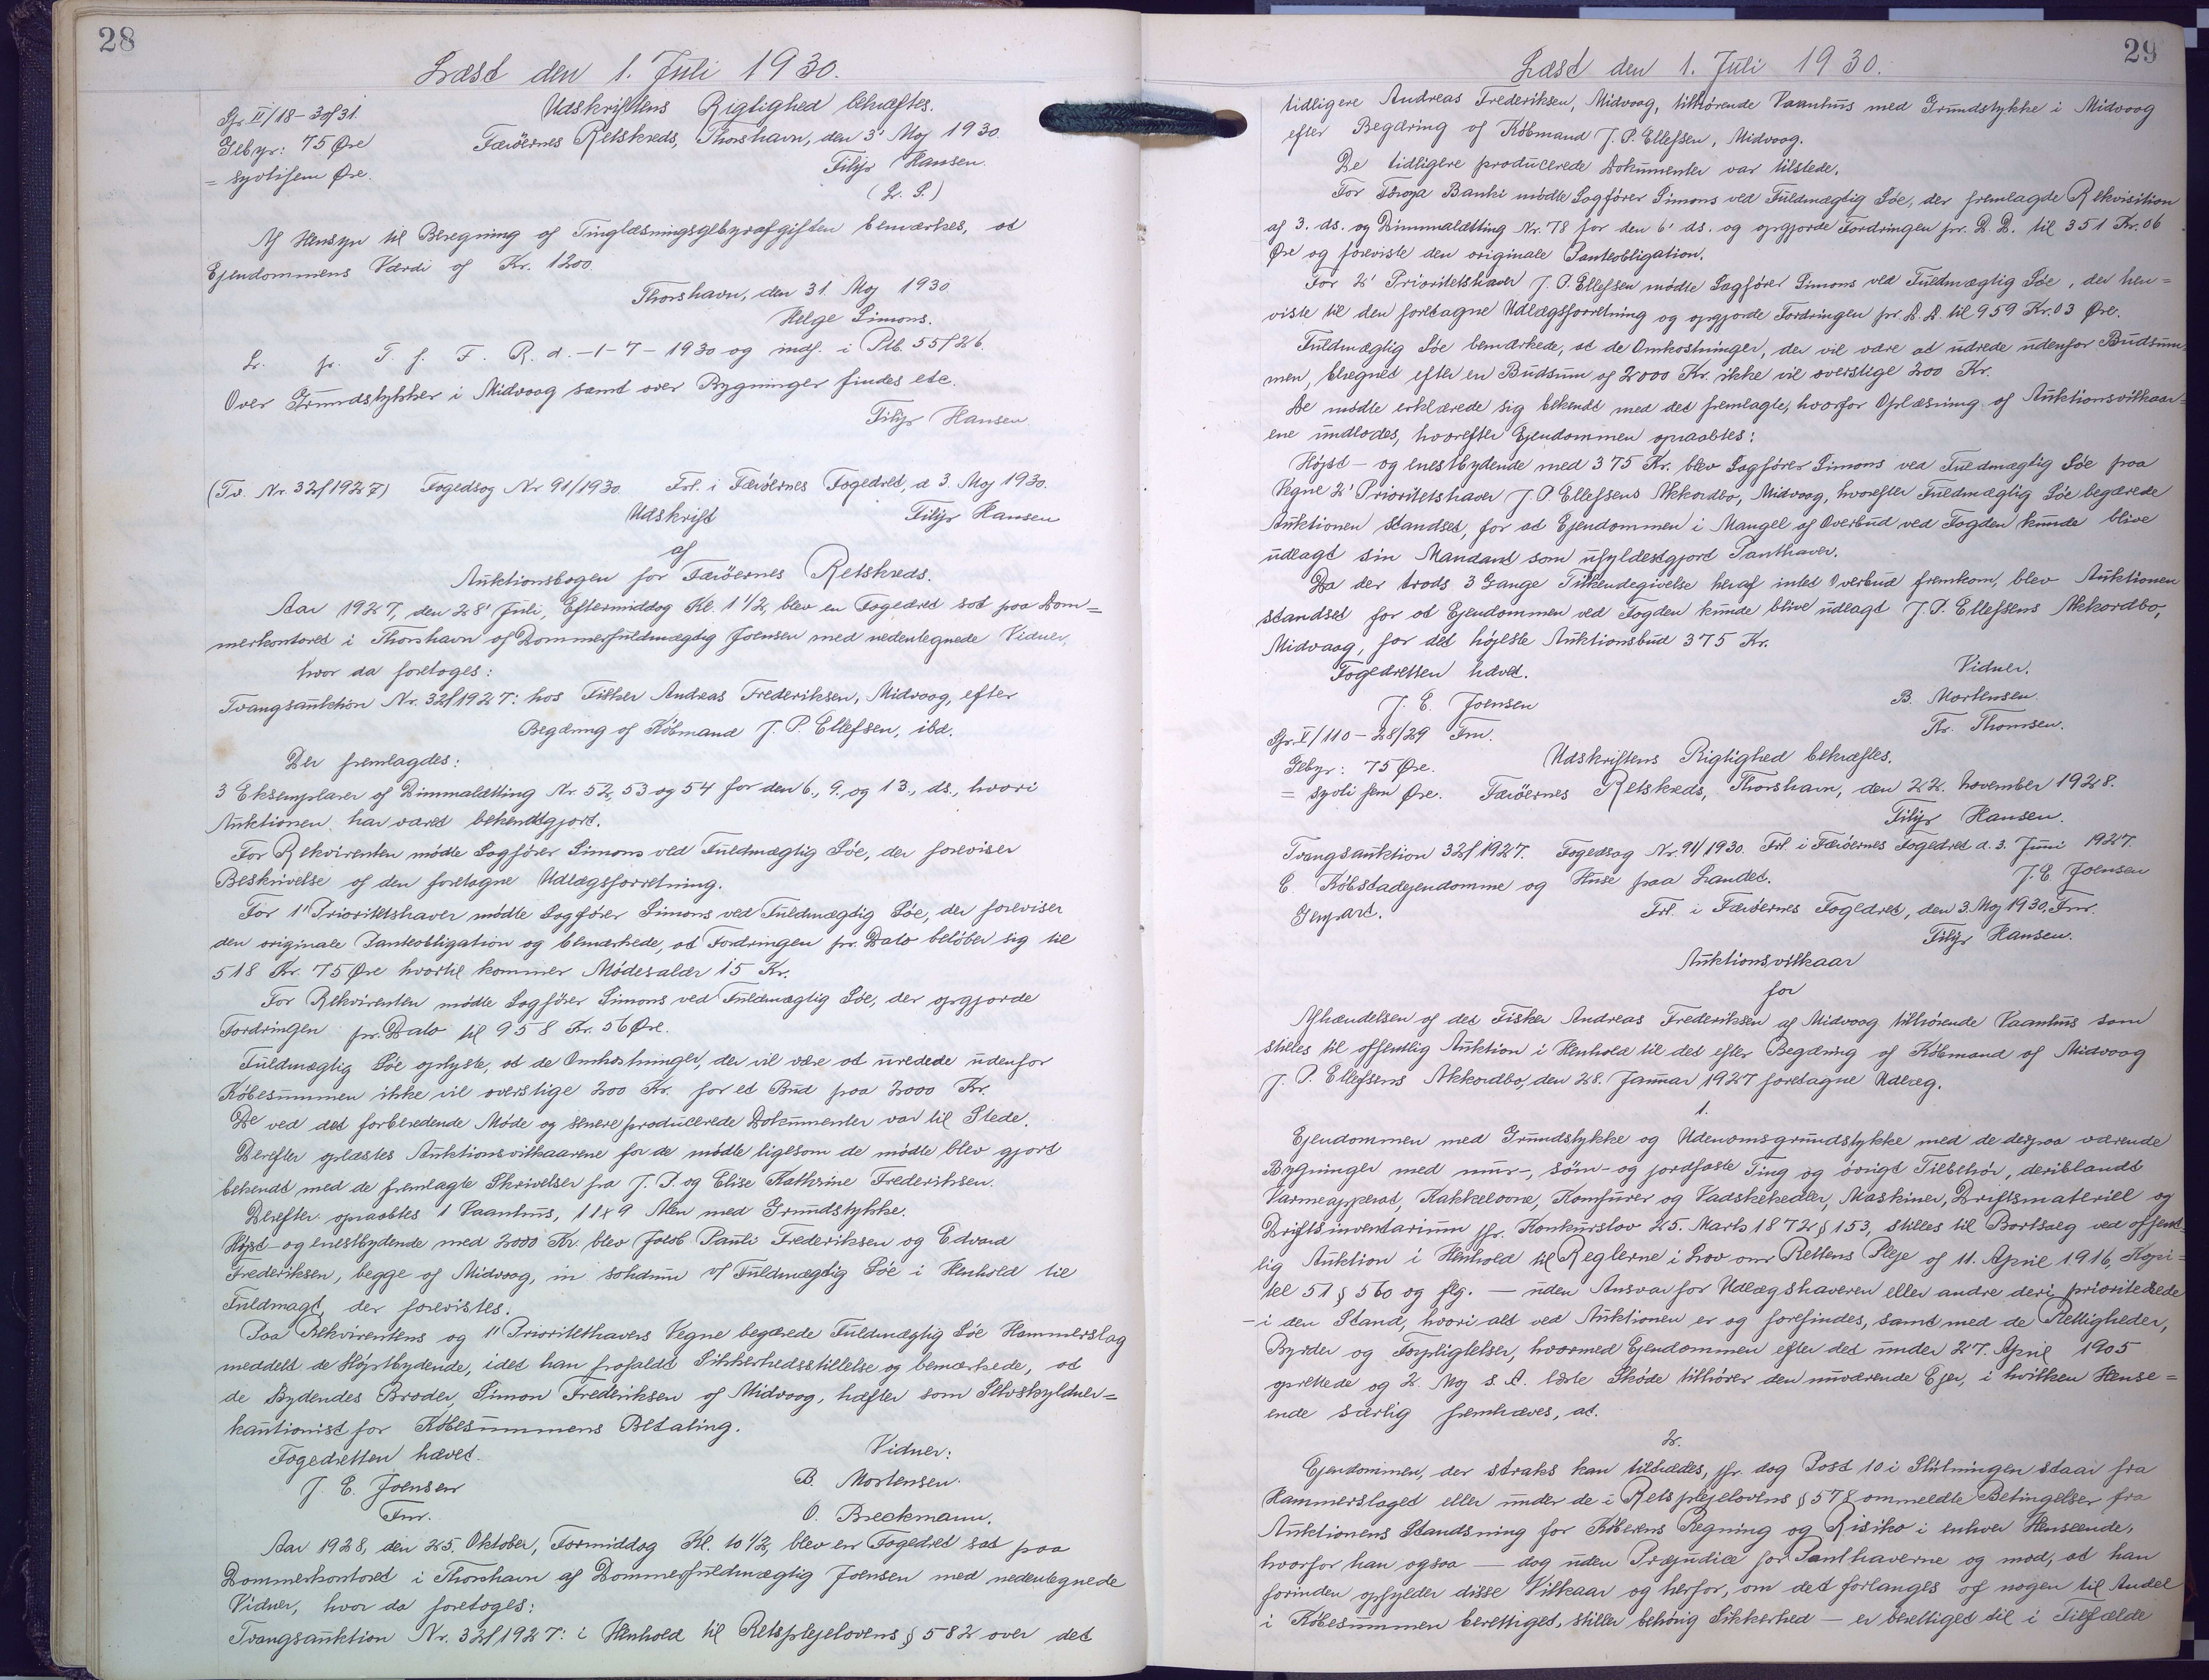 28
Læst den 1. Juli 1930.
Gr. II/18-30/31.
Gebyr: 75 Øre
= syvtifem Øre.
Udskriftens Rigtighed bekræftes.
Færöernes Retskreds, Thorshavn, den 3' Maj 1930.
Filip Hansen.
(L. S.)
Af Hensyn til Beregning af Tinglæsningsgebyrafgiften bemærkes, at
Ejendommens Værdi af Kr. 1200.
Thorshavn, den 31. Maj 1930.
Helge Simons.
L. pr. T. f. F. R. d. -1-7-1930 og indf. i Ptb. 55f26.
Over Grundstykker i Midvaag samt over Bygninger findes etc.
Filip Hansen
(Tv. Nr. 32/1927) Fogedsag Nr 91/1930. Frl. i Færöernes Fogedret, d 3. Maj 1930.
Udskrift Filip Hansen
af
Auktionsbogen for Færöernes Retskreds.
Aar 1927, den 28' Juli, Eftermiddag Kl. 1 1/2, blev en Fogedret sat paa Dom=
merkontoret i Thorshavn af Dommerfuldmægtig Joensen med nedentegnede Vidner,
hvor da foretoges:
Tvangsauktion Nr. 32/1927: hos Fisker Andreas Frederiksen, Midvaag, efter
Begæring af Købmand J. P. Ellefsen, ibd.
Der fremlagdes:
3 Eksemplarer af Dimmalætting Nr. 52, 53 og 54 for den 6., 9., og 13., ds., hvori
Auktionen har været bekendtgjort.
For Rekvirenten mødte Sagfører Simons ved Fuldmægtig Söe, der foreviser
Beskrivelse af den foretagne Udlægsforretning.
For 1' Prioritetshaver mødte Sagfører Simons ved Fuldmægtig Söe, der foreviser
den originale Panteobligation og bemærkede, at Fordringen pr. Dato beløber sig til
518 Kr. 75 Øre hvortil kommer Mødesalær 15 Kr.
For Rekvirenten mødte Sagfører Simons ved Fuldmægtig Söe, der opgjorde
Fordringen pr. Dato til 958 Kr. 56 Øre.
Fuldmægtig Söe oplyste, at de Omkostninger, der vil være at uredede udenfor
Købesummen ikke vil overstige 200 Kr. for et Bud paa 2000 Kr.
De ved det forberedende Møde og senere producerede Dokumenter var til Stede.
Derefter oplæstes Auktionsvilkaarene for de mødte ligesom de mødte blev gjort
bekendt med de fremlagte Skrivelser fra J. P. og Elise Kathrine Frederiksen.
Derefter opraabtes 1 Vaanhus, 11x9 Alen med Grundstykke.
Højst- og enestbydende med 2000 Kr blev Jakob Pauli Frederiksen og Edvard
Frederiksen, begge af Midvaag, in solidum v/ Fuldmægtig Söe i Henhold til
Fuldmagt, der forevistes.
Paa Rekvirentens og 1' Prioritethavers Vegne begærede Fuldmægtig Söe Hammerslag
meddelt de Højstbydende, idet han frafaldt Sikkerhedsstillelse og bemærkede, at
de Bydendes Broder, Simon Frederiksen af Midvaag, hæfter som Selvskyldner=
kautionist for Købesummens Betaling.
Fogedretten hævet. Vidner:
J. E. Joensen B. Mortensen.
Fm. O. Breckmann.
Aar 1928, den 25. Oktober, Formiddag Kl. 10 1/2, blev en Fogedret sat paa
Dommerkontoret i Thorshavn af Dommerfuldmægtig Joensen med nedentegnede
Vidner, hvor da foretoges:
Tvangsauktion Nr. 32/1927: i Henhold til Retsplejelovens § 582 over det
29
Læst den 1. Juli 1930.
tidligere Andreas Frederiksen, Midvaag, tilhørende Vaanhus med Grundstykke i Midvaag
efter Begæring af Købmand J. P. Ellefsen, Midvaag.
De tidligere producerede Dokumenter var tilstede.
For Føroya Banki mødte Sagfører Simons ved Fuldmægtig Söe, der fremlagde Rekvisition
af 3. ds. og Dimmalætting Nr. 78 for den 6' ds. og opgjorde Fordringen pr. D. D. til 351 Kr. 06
Øre og foreviste den originale Panteobligation.
For 2' Prioritetshaver J. P. Ellefsen mødte Sagfører Simons ved Fuldmægtig Söe, der hen=
viste til den foretagne Udlægsforretning og opgjorde Fordringen pr. D. D. til 959 Kr. 03 Øre.
Fuldmægtig Söe bemærkede, at de Omkostninger, der vil være at udrede udenfor Budsum
men, beregnet efter en Budsum af 2000 Kr. ikke vil overstige 200 Kr.
De mødte erklærede sig bekendt med det fremlagte, hvorfor Oplæsning af Auktionsvilkaar=
ene undlodes, hvorefter Ejendommen opraabtes:
Højst- og enestbydende med 375 Kr. blev Sagfører Simons ved Fuldmægtig Söe paa
Vegne 2' Prioritetshaver J. P Ellefsens Akkordbo, Midvaag, hvorefter Fuldmægtig Söe begærede
Auktionen standset, for at Ejendommen i Mangel af Overbud ved Fogden kunde blive
udlagt sin Mandant som ufyldestgjort Panthaver.
Da der trods 3 Gange Tilkendegivelse heraf intet Overbud fremkom, blev Auktionen
standset for at Ejendommen ved Fogden kunde blive udlagt J. P. Ellefsens Akkordbo,
Midvaag, for det højeste Auktionsbud 375 Kr.
Fogedretten hævet. Vidner.
J. E. Joensen B. Mortensen.
Fm. Th. Thomsen.
Gr. V/110-28/29
Gebyr: 75 Øre.
= syvti fem Øre.
Udskriftens Rigtighed bekræftes.
Færöernes Retskreds, Thorshavn, den 22. November 1928.
Filip Hansen.
Tvangsauktion 32/1927. Fogedsag Nr. 91/1930. Frl. i Færöernes Fogedret d. 3. Juni 1927.
E. Købstadejendomme og Huse paa Landet. J. E Joensen
Genpart. Frl. i Færöernes Fogedret, den 3. Maj 1930. Fm.
Filip Hansen.
Auktionsvilkaar
for
Afhændelsen af det Fisker Andreas Frederiksen af Midvaag tilhørende Vaanhus som
stilles til offentlig Auktion i Henhold til det efter Begæring af Købmand af Midvaag
J. P. Ellefsens Akkordbo, den 28. Januar 1927 foretagne Udlæg.
1.
Ejendommen med Grundstykke og Udenomsgrundstykke med de derpaa værende
Bygninger med mur-, søm- og jordfaste Ting og øvrigt Tilbehør, deriblandt
Varmeapperat, Kakkelovne, Komfurer og Vadskekedler, Maskiner, Driftsmateriel og
Driftsinventarium jfr. Konkurslov 25. Marts 1872 § 153, stilles til Bortsalg ved offent=
lig Auktion i Henhold til Reglerne i Lov om Rettens Pleje af 11. April 1916, Kapi=
tel 51 § 560 og flg. — uden Ansvar for Udlægshaveren eller andre deri prioriterede
- i den Stand, hvori alt ved Auktionen er og forefindes, samt med de Rettigheder,
Byrder og Forpligtelser, hvormed Ejendommen efter det under 27. April 1905
oprettede og 2. Maj s. A. læste Skøde tilhører den nuværende Ejer, i hvilken Hense=
ende særlig fremhæves, at.
2.
Ejendommen, der straks kan tiltrædes, jfr. dog Post 10 i Slutningen staar fra
Hammerslaget eller under de i Retsplejelovens § 578 ommeldte Betingelser fra
Auktionens Standsning for Køberens Regning og Risiko i enhver Henseende,
hvorfor han ogsaa — dog uden Præjudice for Panthaverne og mod, at han
forinden opfylder disse Vilkaar og herfor, om det forlanges af nogen til Andel
i Købesummen berettiget, stiller behørig Sikkerhed — er berettiget til i Tilfælde